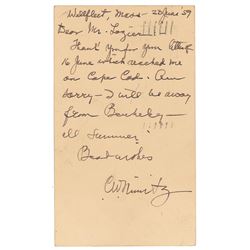 Wellfleet, Mass - 23 June '59
Dear Mr. Lozier
Thank you for your letter of
16 June which reached me
on Cape Cod. Am
sorry - I will be away
from Berkeley -
all summer.
Best wishes
CW Nimitz